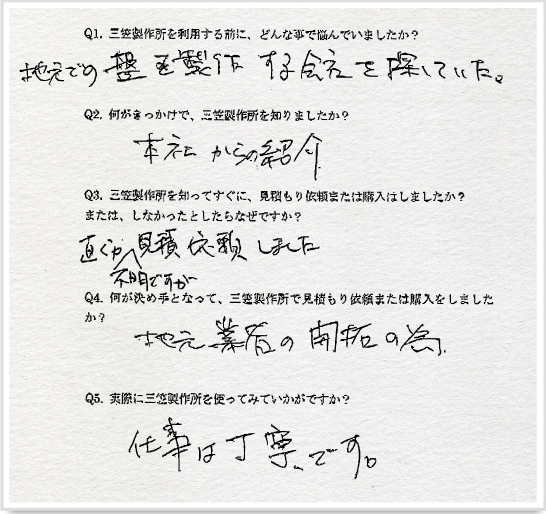 Q1. 三笠製作所を利用する前に、どんな事で悩んでいましたか？
地元での盤を製作する会社を探していた。
Q2. 何がきっかけで、三笠製作所を知りましたか？
本社からの紹介
Q3. 三笠製作所を知ってすぐに、見積もり依頼または購入はしましたか？
または、しなかったとしたらなぜですか？
直ぐか見積依頼しました
不明ですが
Q4. 何が決め手となって、三笠製作所で見積もり依頼または購入をしました
か？
地元業者の開拓の為.
Q5. 実際に三笠製作所を使ってみていかがですか？
仕事は丁寧、です。